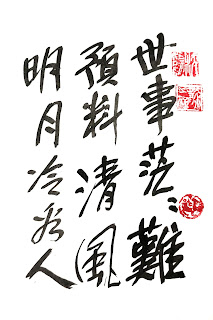 世事茫〻難
預料清風
明月冷看人